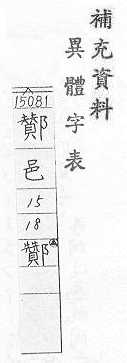 補充資料
異體字表
15081
鄼
邑
15
18